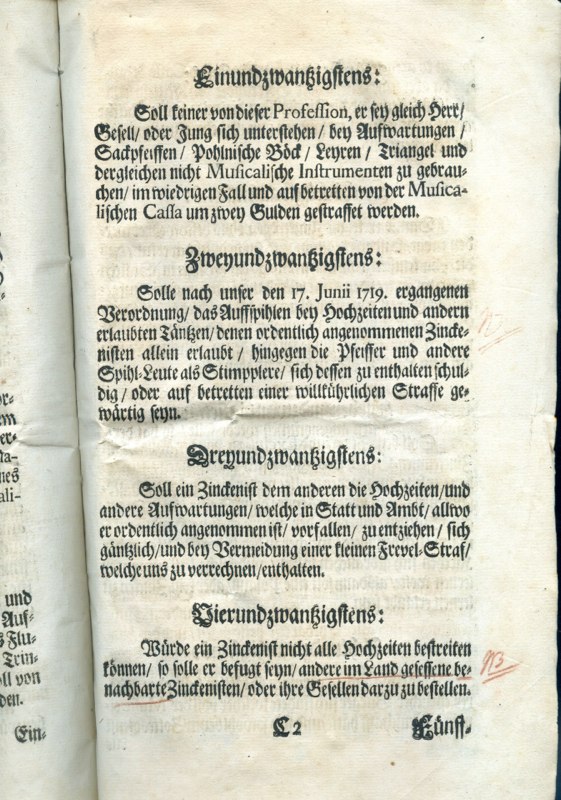 Einundzwantzigstens:
Soll keiner von dieser Profession, er sey gleich Herr/
Gesell/ oder Jung sich unterstehen/ bey Aufwartungen/
Sackpfeiffen/ Pohlnische Böck/ Leyren/ Triangel und
dergleichen nicht Musicalische Instrumenten zu gebrau-
chen/ im wiedrigen Fall und auf betretten von der Musica-
lischen Cassa um zwey Gulden gestraffet werden.
Zweyundzwantzigstens:
Solle nach unser den 17. Junii 1719. ergangenen
Verordnung/ das Auffspihlen bey Hochzeiten und andern
erlaubten Täntzen/ denen ordentlich angenommenen Zincke-
nisten allein erlaubt/ hingegen die Pfeiffer und andere
Spihl-Leute als Stimpplere/ sich dessen zu enthalten schul-
dig/ oder auf betretten einer willkührlichen Straffe ge-
wärtig seyn.
Dreyundzwantzigstens:
Soll ein Zinckenist dem anderen die Hochzeiten/ und
andere Aufwartungen/ welche in Statt und Ambt/ allwo
er ordentlich angenommen ist/ vorfallen/ zu entziehen/ sich
gäntzlich/ und bey Vermeidung einer kleinen Frevel-Straf/
welche uns zu verrechnen/ enthalten.
Vierundzwantzigstens:
Würde ein Zinckenist nicht alle Hochzeiten bestreiten
können/ so solle er befugt seyn/ andere im Land gesessene be-
nachbarte Zinckenisten/ oder ihre Gesellen darzu zu bestellen.
C 2 Fünff-
NB
und
Auf-
s Flu-
Trin-
oll von
den.
Ein-